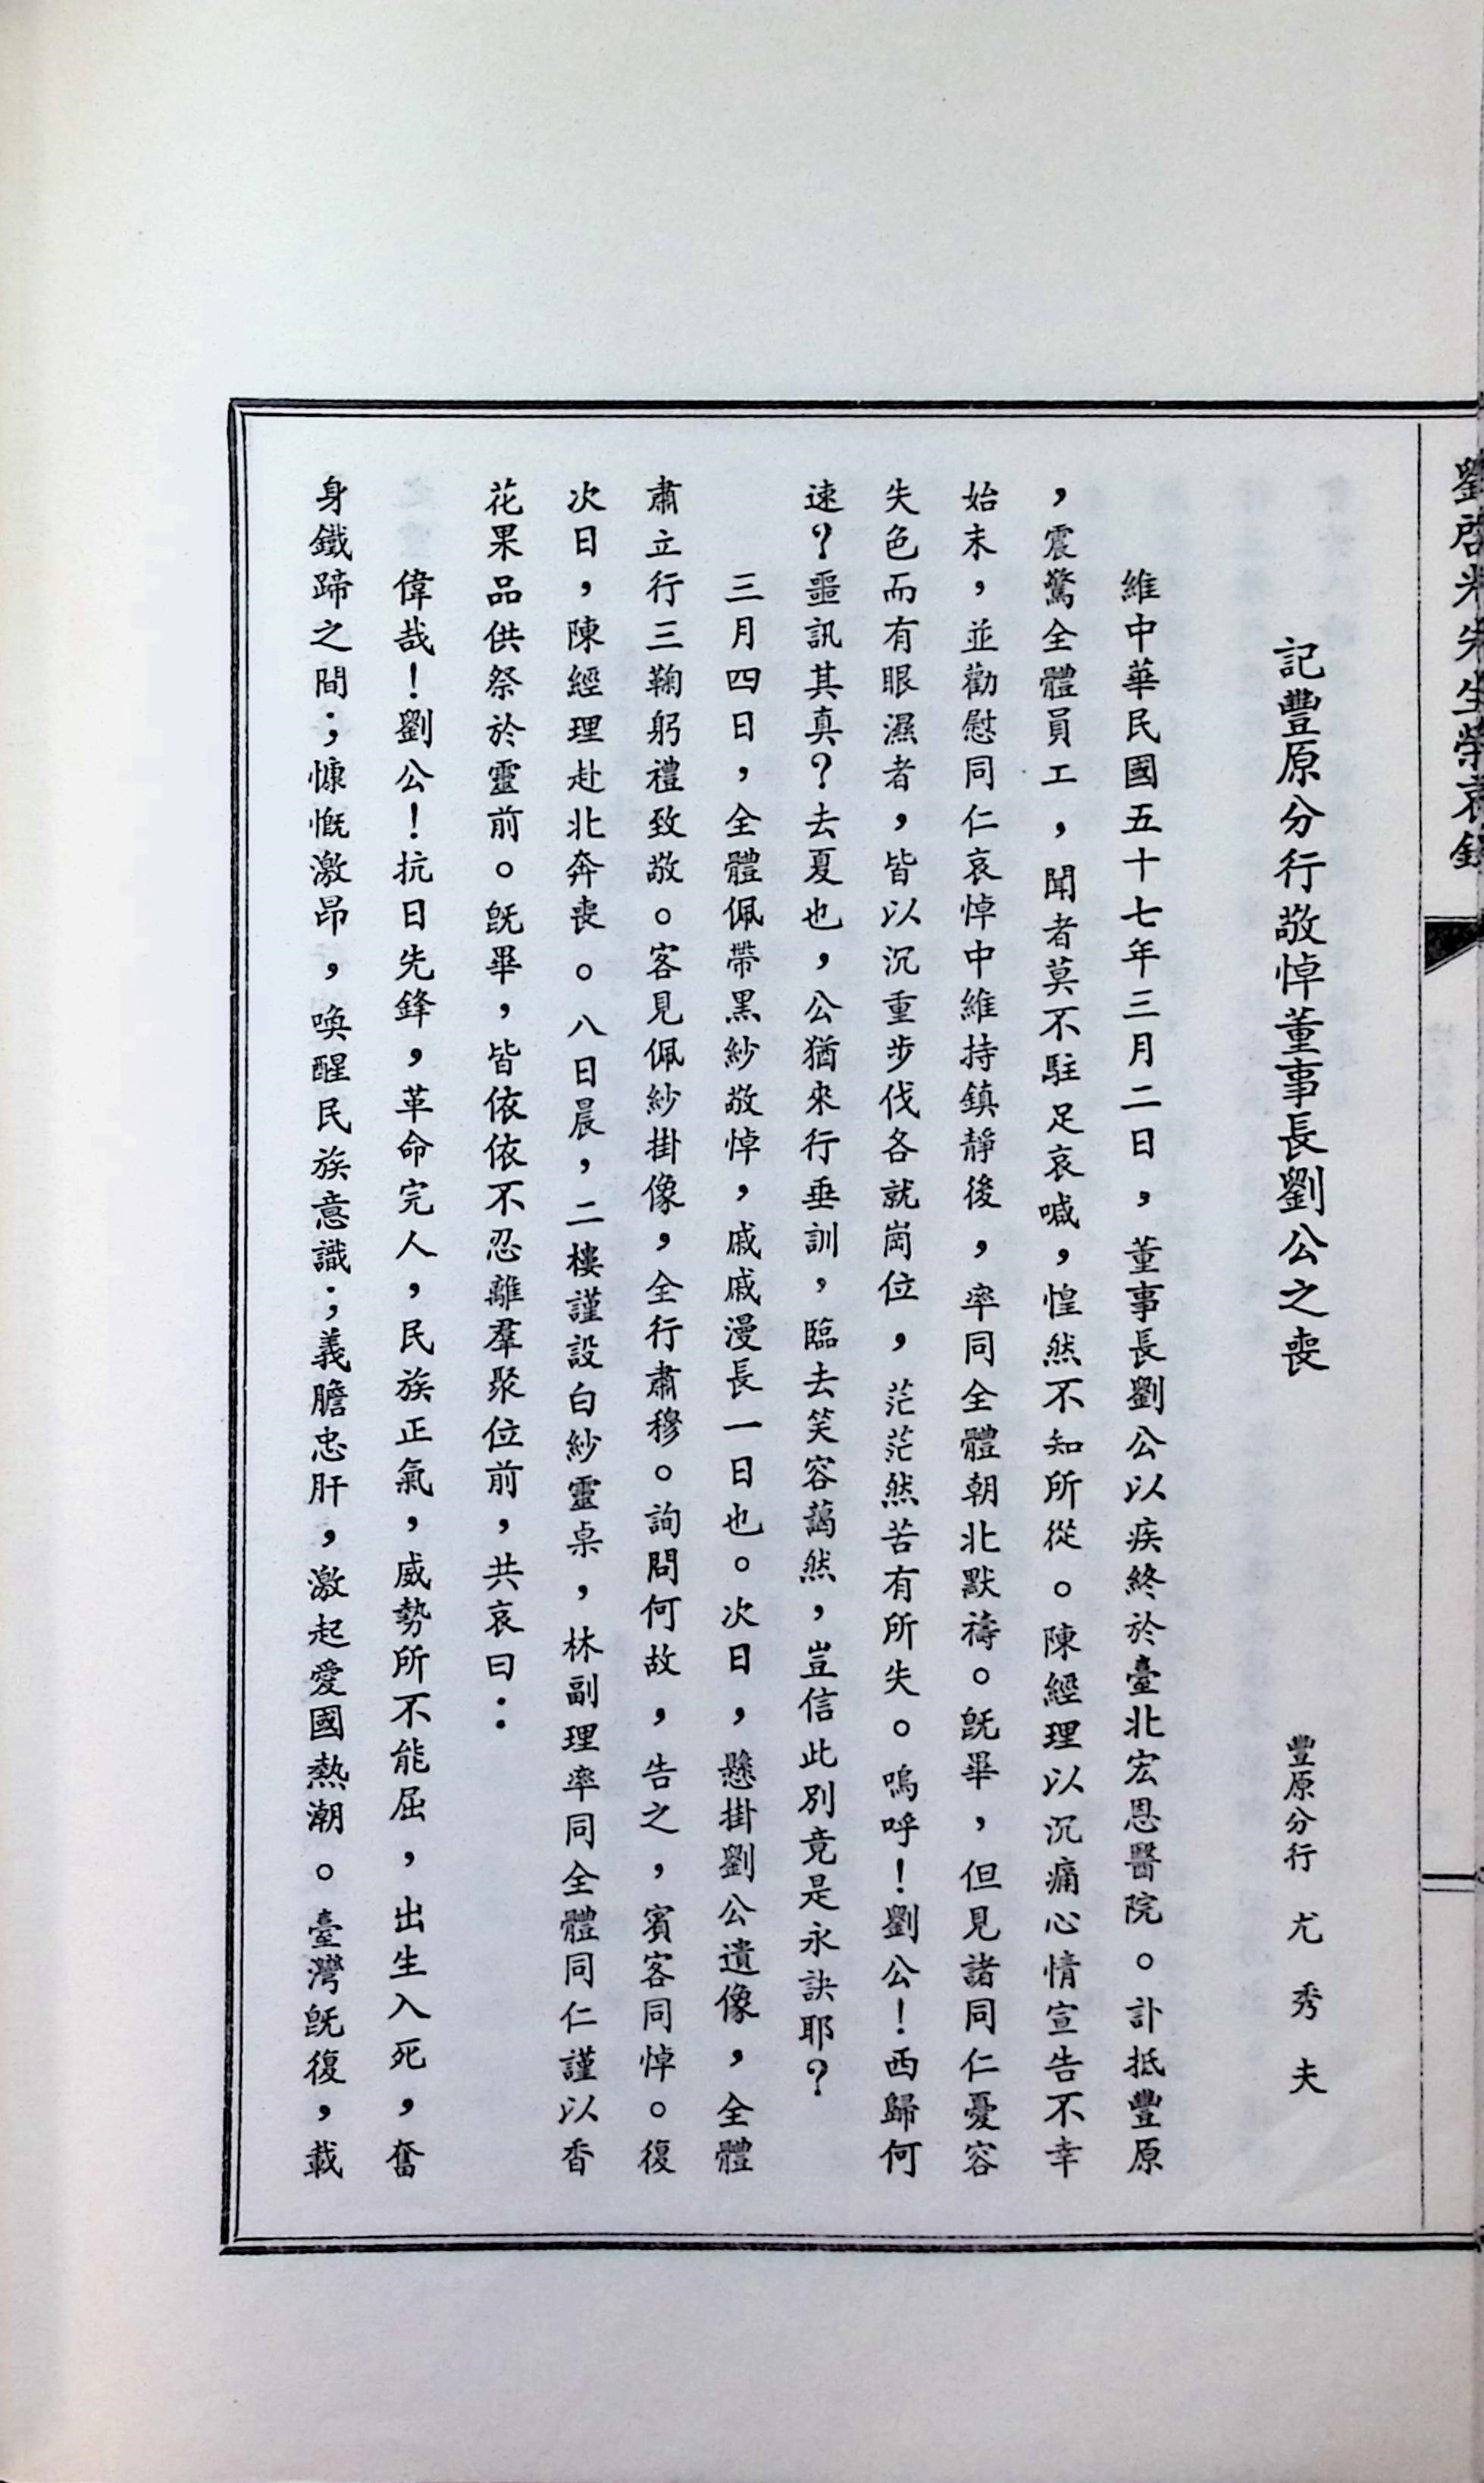 劉啓光先生榮哀錄
記豐原分行敬悼董事長劉公之喪
豐原分行 尤秀夫
維中華民國五十七年三月二日，董事長劉公以疾終於臺北宏恩醫院。訃抵豐原
，震驚全體員工，聞者莫不駐足哀喊，惶然不知所從。陳經理以沉痛心情宣告不幸
始末，並勸慰同仁哀悼中維持鎮靜後，率同全體朝北默禱。旣畢，但見諸同仁憂容
失色而有眼濕者，皆以沉重步伐各就崗位，茫茫然苦有所失。嗚呼！劉公！西歸何
速？噩訊其真？去夏也，公猶來行垂訓，臨去笑容藹然，豈信此別竟是永訣耶？
三月四日，全體佩帶黑紗敬悼，戚戚漫長一日也。次日，懸掛劉公遺像，全體
肅立行三鞠躬禮致敬。客見佩紗掛像，全行肅穆。詢問何故，告之，賓客同悼。復
次日，陳經理赴北奔喪。八日晨，二樓謹設白紗靈桌，林副理率同全體同仁謹以香
花果品供祭於靈前。旣畢，皆依依不忍離羣聚位前，共哀曰：
偉哉！劉公！抗日先鋒，革命完人，民族正氣，威勢所不能屈，出生入死，奮
身鐵蹄之間；慷慨激昂，喚醒民族意識；義膽忠肝，激起愛國熱潮。臺灣旣復，載